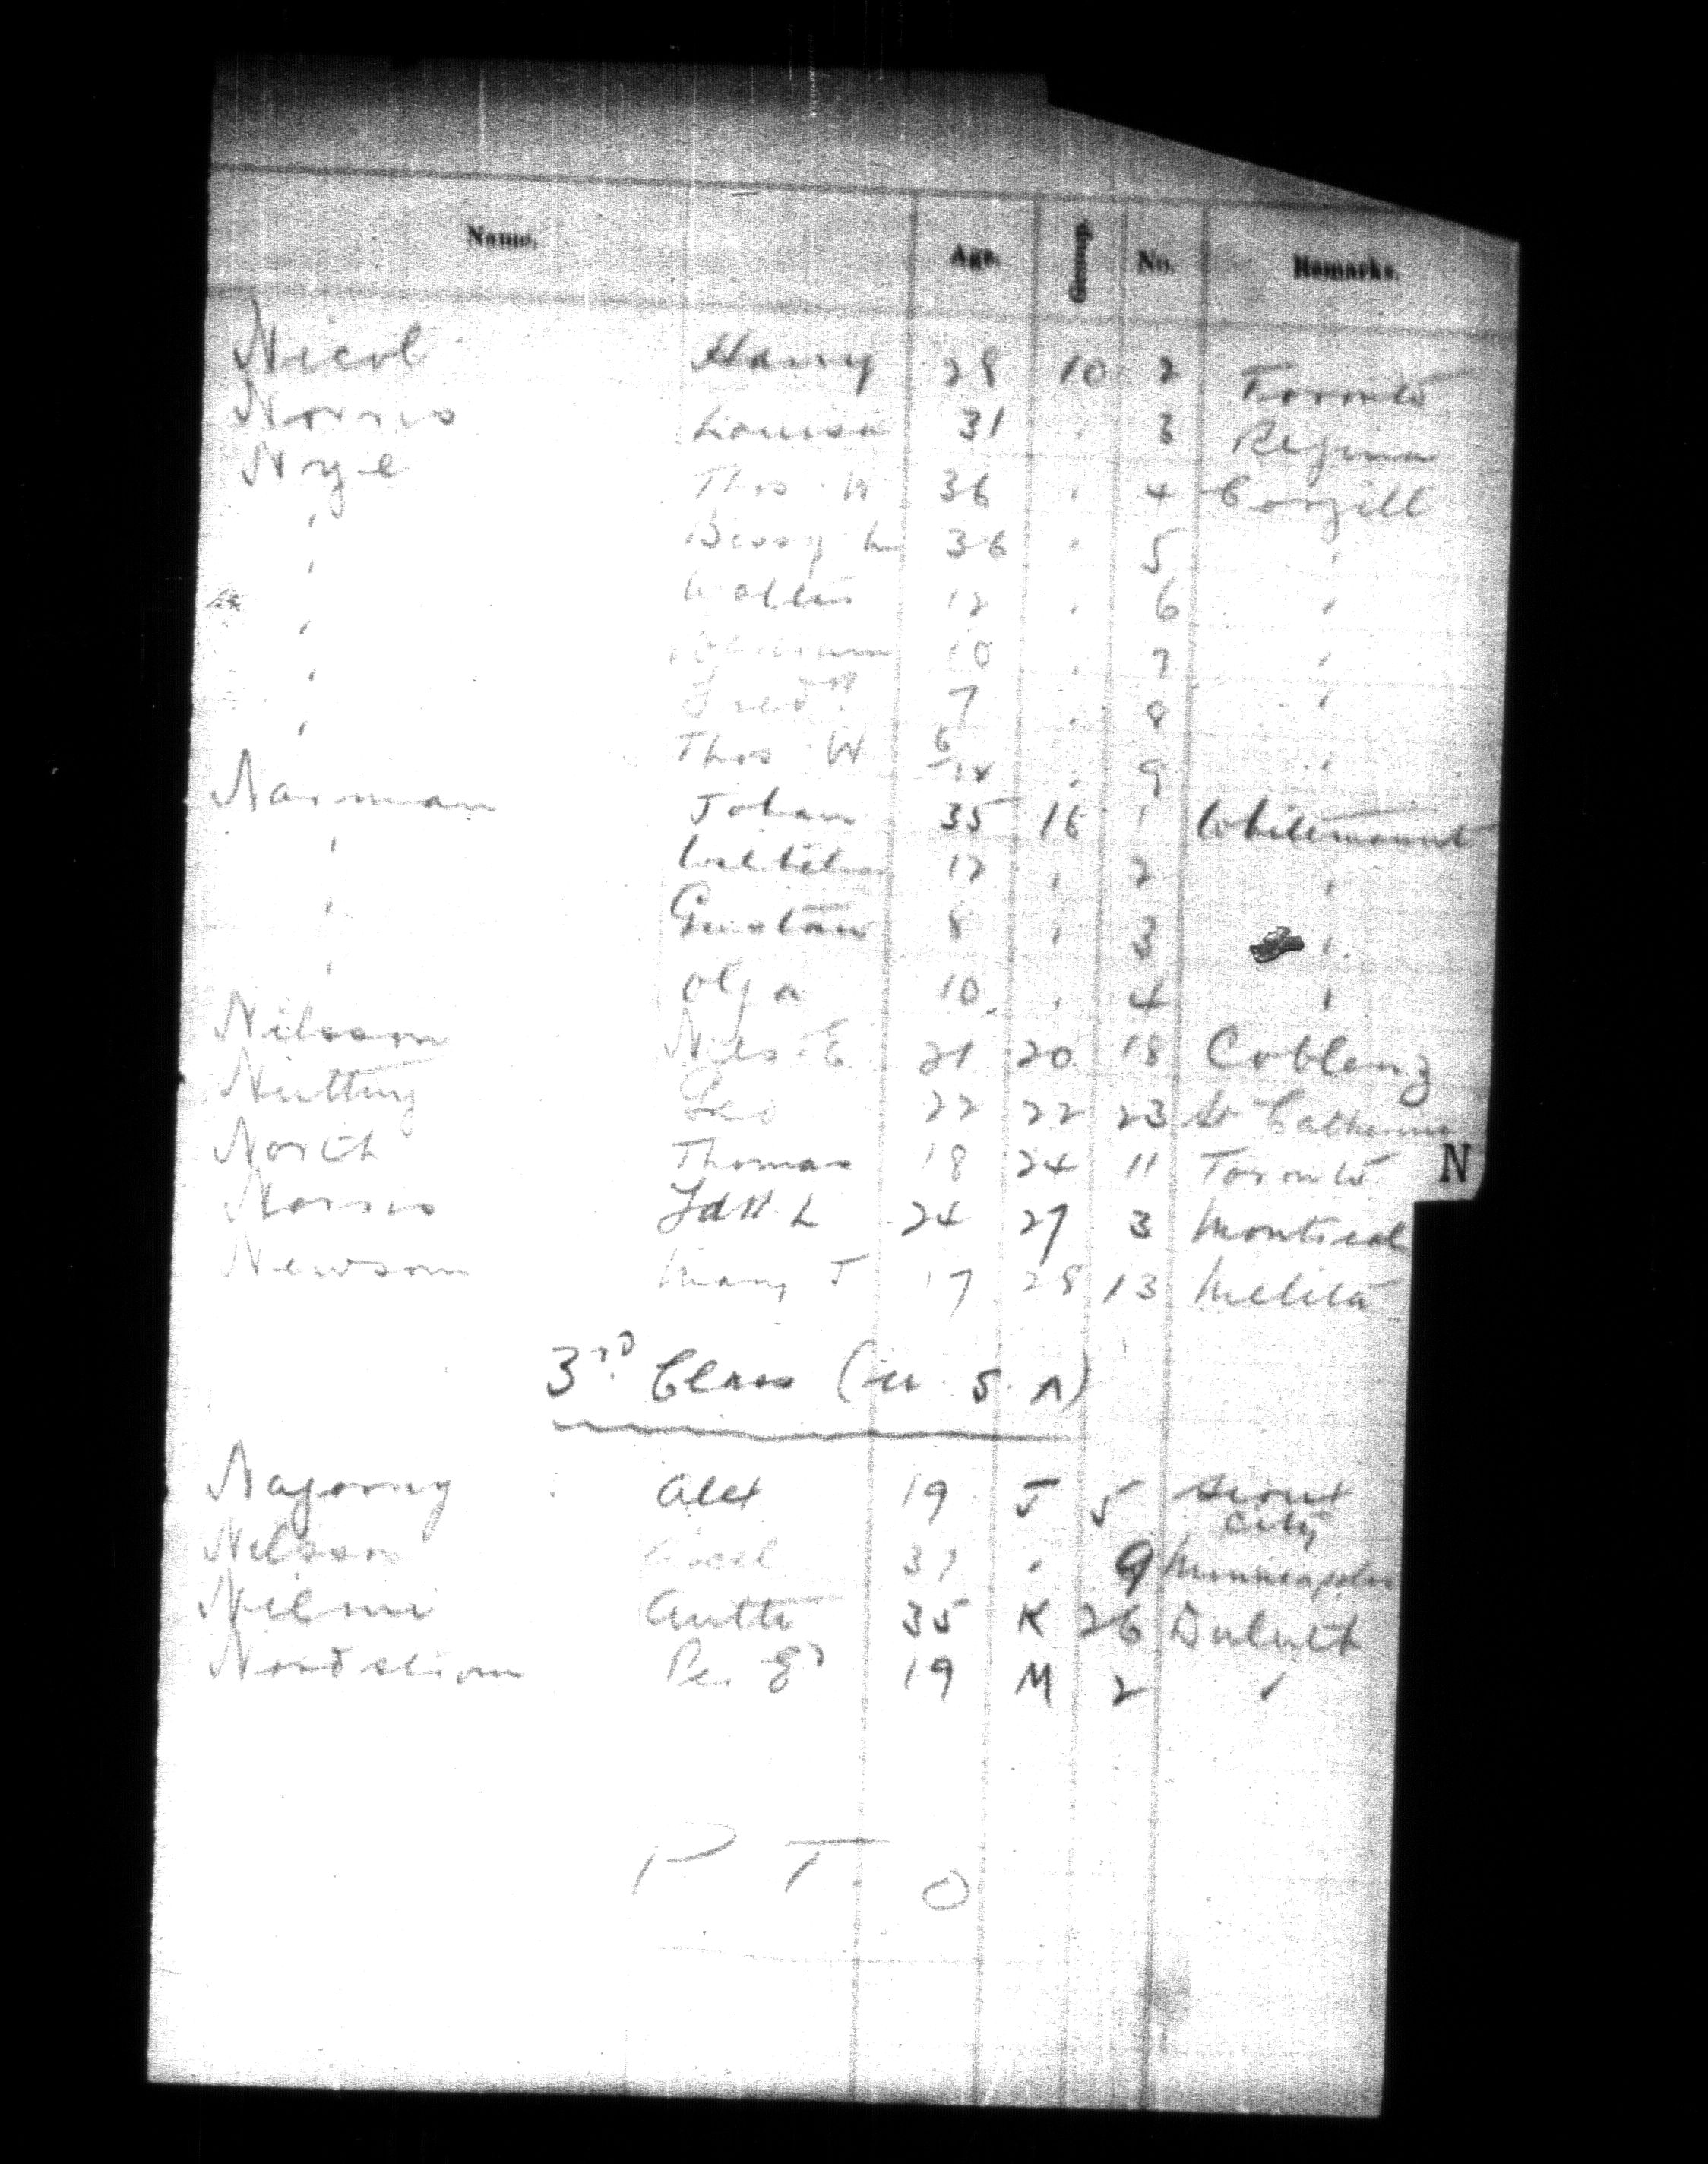 Name. Age. Group No. Remarks.
Nicol Harry 28 10 2 Toronto
Norris Louisa 31 " 3 Regina
Nye Thos W 36 " 4 Cargill
" Bessy L 36 " 5 "
" Walter 12 " 6 "
" William 10 " 7 "
" Fred H 7 " 8 "
" Thos W 6/12 " 9 "
Narman Johan 35 16 1 Whitemount
" 12 " 2 "
" Gustav 8 " 3 "
" Olga 10 " 4 "
Nilsson Nils E 21 20 18 Coblenz
Nutting Leo 22 22 23 St Catherines
North Thomas 18 24 11 Toronto
N
Norris L 24 27 3 Montreal
Newsom Mary J 17 28 13 Melita
3rd Class (U. S. A)
Nagorny Alex 19 J 5 Sioux
City
Nilsson Axel 37 " 9 Minneapolis
Nilmi Antti 35 K 26 Duluth
Nordstrom Per Ed 19 M 2 "
P T O